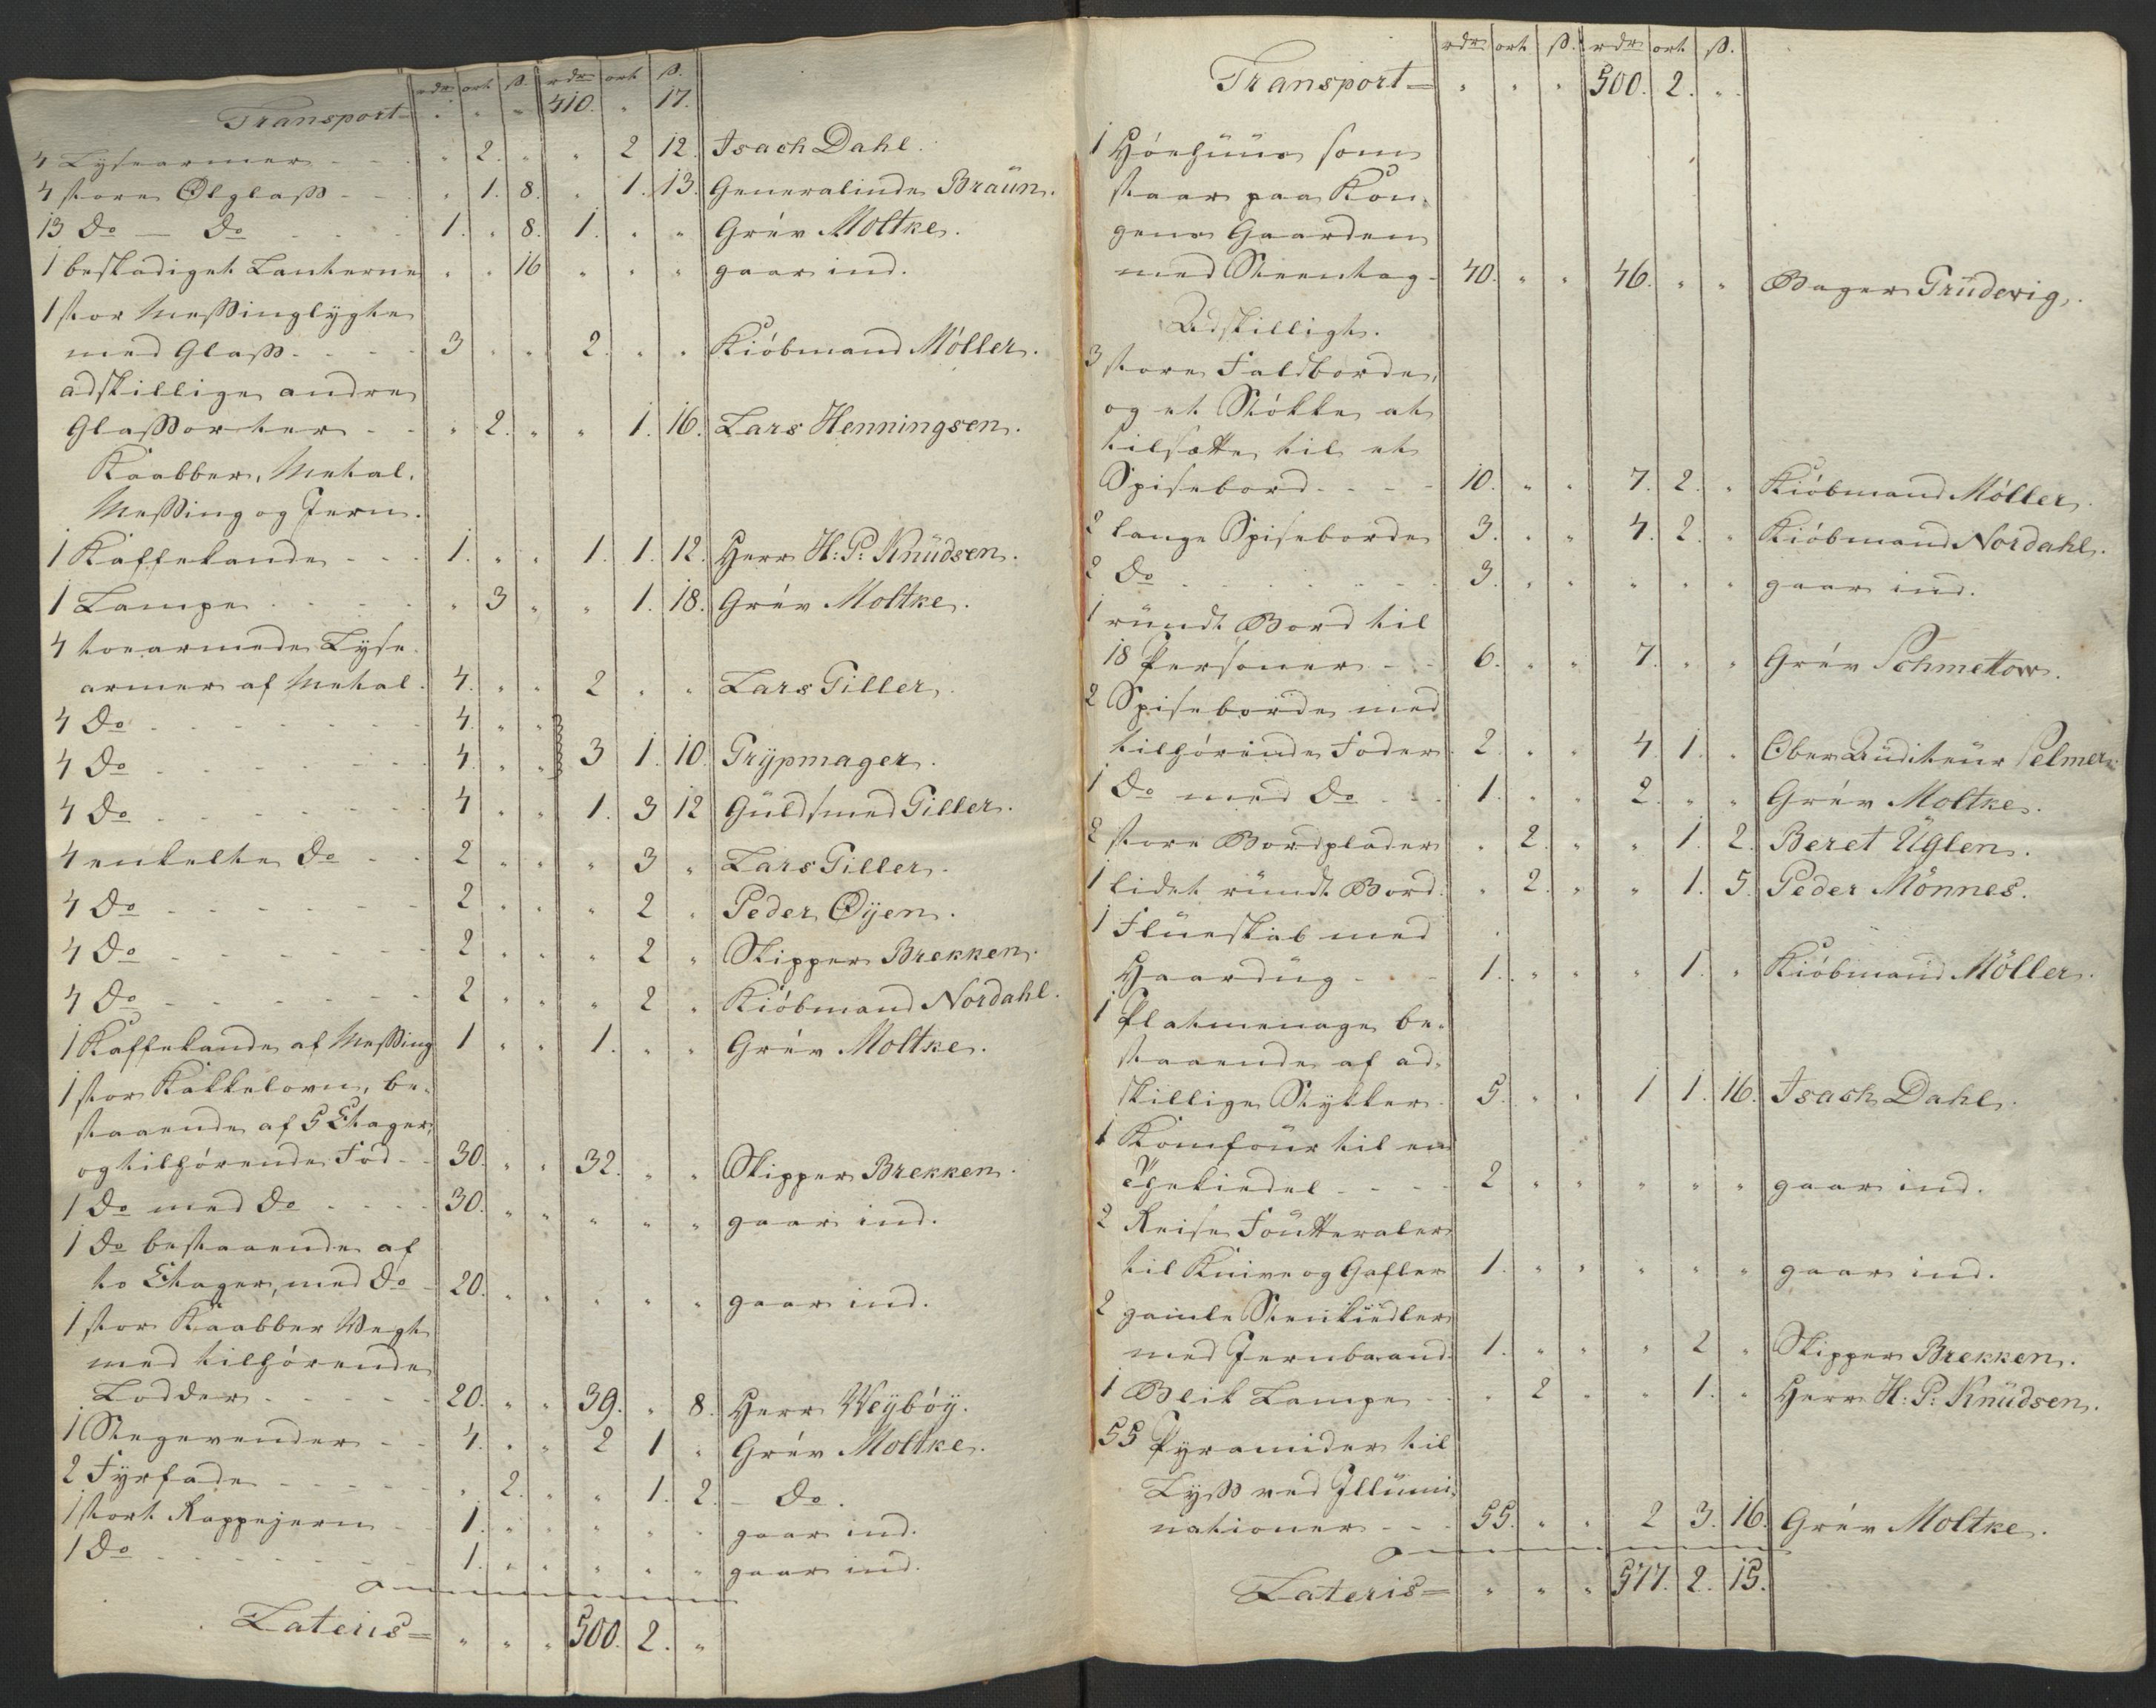 rdr ort ß. rdr ort ß.
Transport= " " " 410. " 17.
4 Lysearmer - - " 2. " " 2 12. Isach Dahl.
4 store Ølglaß - - " 1. 8. " 1. 13. Generalinde Braün.
13 Do — Do - - 1. " 8. 1. " " Grév Moltke.
1 beskadiget Lanterne " " 16 " " " gaar ind.
1 stor Meßinglygte
med Glaß - - - - 3 " " 2. " " Kióbmand Móller.
adskillige andre
Glaßsorter - - " 2. " " 1. 16. Lars Henningsen.
Kaabber, Metal,
Meßing og Jern.
1 Kaffekande - - - 1. " " 1. 1. 12. Herr H: P: Knüdsen.
1 Lampe - - - - " 3 " " 1. 18. Grév Moltke.
4 toearmede Lyse-
armer af Metal. 4. " " 2 " " Lars Giller.
4 Do - - - - - - - 4. " "
4 Do - - - - - - - 4. " " 3 1. 10. Grÿpmager.
4 Do - - - - - - - 4 " " 1. 3 12 Güldsmed Giller.
4 enkelte Do - - 2 " " " 3 " Lars Giller.
4 Do - - - - - - 2 " " " 2 " Peder Øÿen.
4 Do - - - - - - 2 " " " 2 " Skipper Brekken.
4 Do - - - - - - 2 " " " 2 " Kióbmand Nordahl.
1 Kaffekande af Meßing 1 " " 1. " " Grév Moltke.
1 stor Kakkelovn, be-
staaende af 5 Etager,
og tilhórende Fod - - 30. " " 32. " " Skipper Brekken.
1 Do med Do - - - - 30. " " " " " gaar ind.
1 Do bestaaende af
to Etager, med Do - 20. " " " " " gaar ind.
1 stor Kaabber Vegt
med tilhórende
Lodder - - - - - 20. " " 39. " 8. Herr Weÿbóÿ.
1 Stegevender - - 4. " " 2 1 " Grév Moltke.
2 Fÿrfade - - - - - " 2. " " 1. 2. - Do.
1 stort Rappejern - - 1. " " " " " gaar ind.
1 Do - - - - - - - - 1. " " " " " gaar ind.
Lateris= " " " 500. 2. "
rdr ort ß. rdr ort ß.
Transport= " " " 500. 2. "
1 Hóehüüs som
staar paa Kon-
gens Gaarden
med Steentag - 40. " " 46. " " Bager Grüdevig.
Adskilligt.
3 store Faldborde,
og et Stókke at
tilsætte til et
Spisebord - - - - 10. " " 7. 2. " Kióbmand Móller.
2 lange Spiseborde 3. " " 4. 2. " Kióbmand Nordahl.
2 Do - - - - - - - 3. " " " " " gaar ind.
1 ründt Bord til
18 Personer - - - 6. " " 7. " " Grév Schmettow.
2 Spiseborde med
tilhórende Foder 2. " " 4. 1. " Ober Aüditeür Selmer.
1 Do med Do - - - 1. " " 2. " " Grév Moltke.
2 store Bordplader " 2. " " 1. 2. Beret Üglen.
1 lidet ründt Bord. " 2. " " 1. 5. Peder Mönnes.
1 Flüeskab med
Haardüg - - - 1. " " " 1. " Kióbmand Möller.
1 Platmenage be-
staaende af ad-
skillige Stÿkker - 5. " " 1 1. 16. Isach Dahl.
1 Komfoür til en
Thekiedel - - - - 2 " " " " " gaar ind.
2 Reise Foütteraler
til Knive og Gafler 1. " " " " " gaar ind.
2 gamle Steenkiedler
med Jernbaand. 1. " " " 2 " Skipper Brekken.
1 Blik Lampe - - " 2 " " 1. " Herr H: P: Knüdsen.
55 Pÿramider til
Lÿß ved Illümi-
nationer - - - 55. " " 2 3. 16. Grév Moltke.
Lateris= " " " 577. 2. 15.